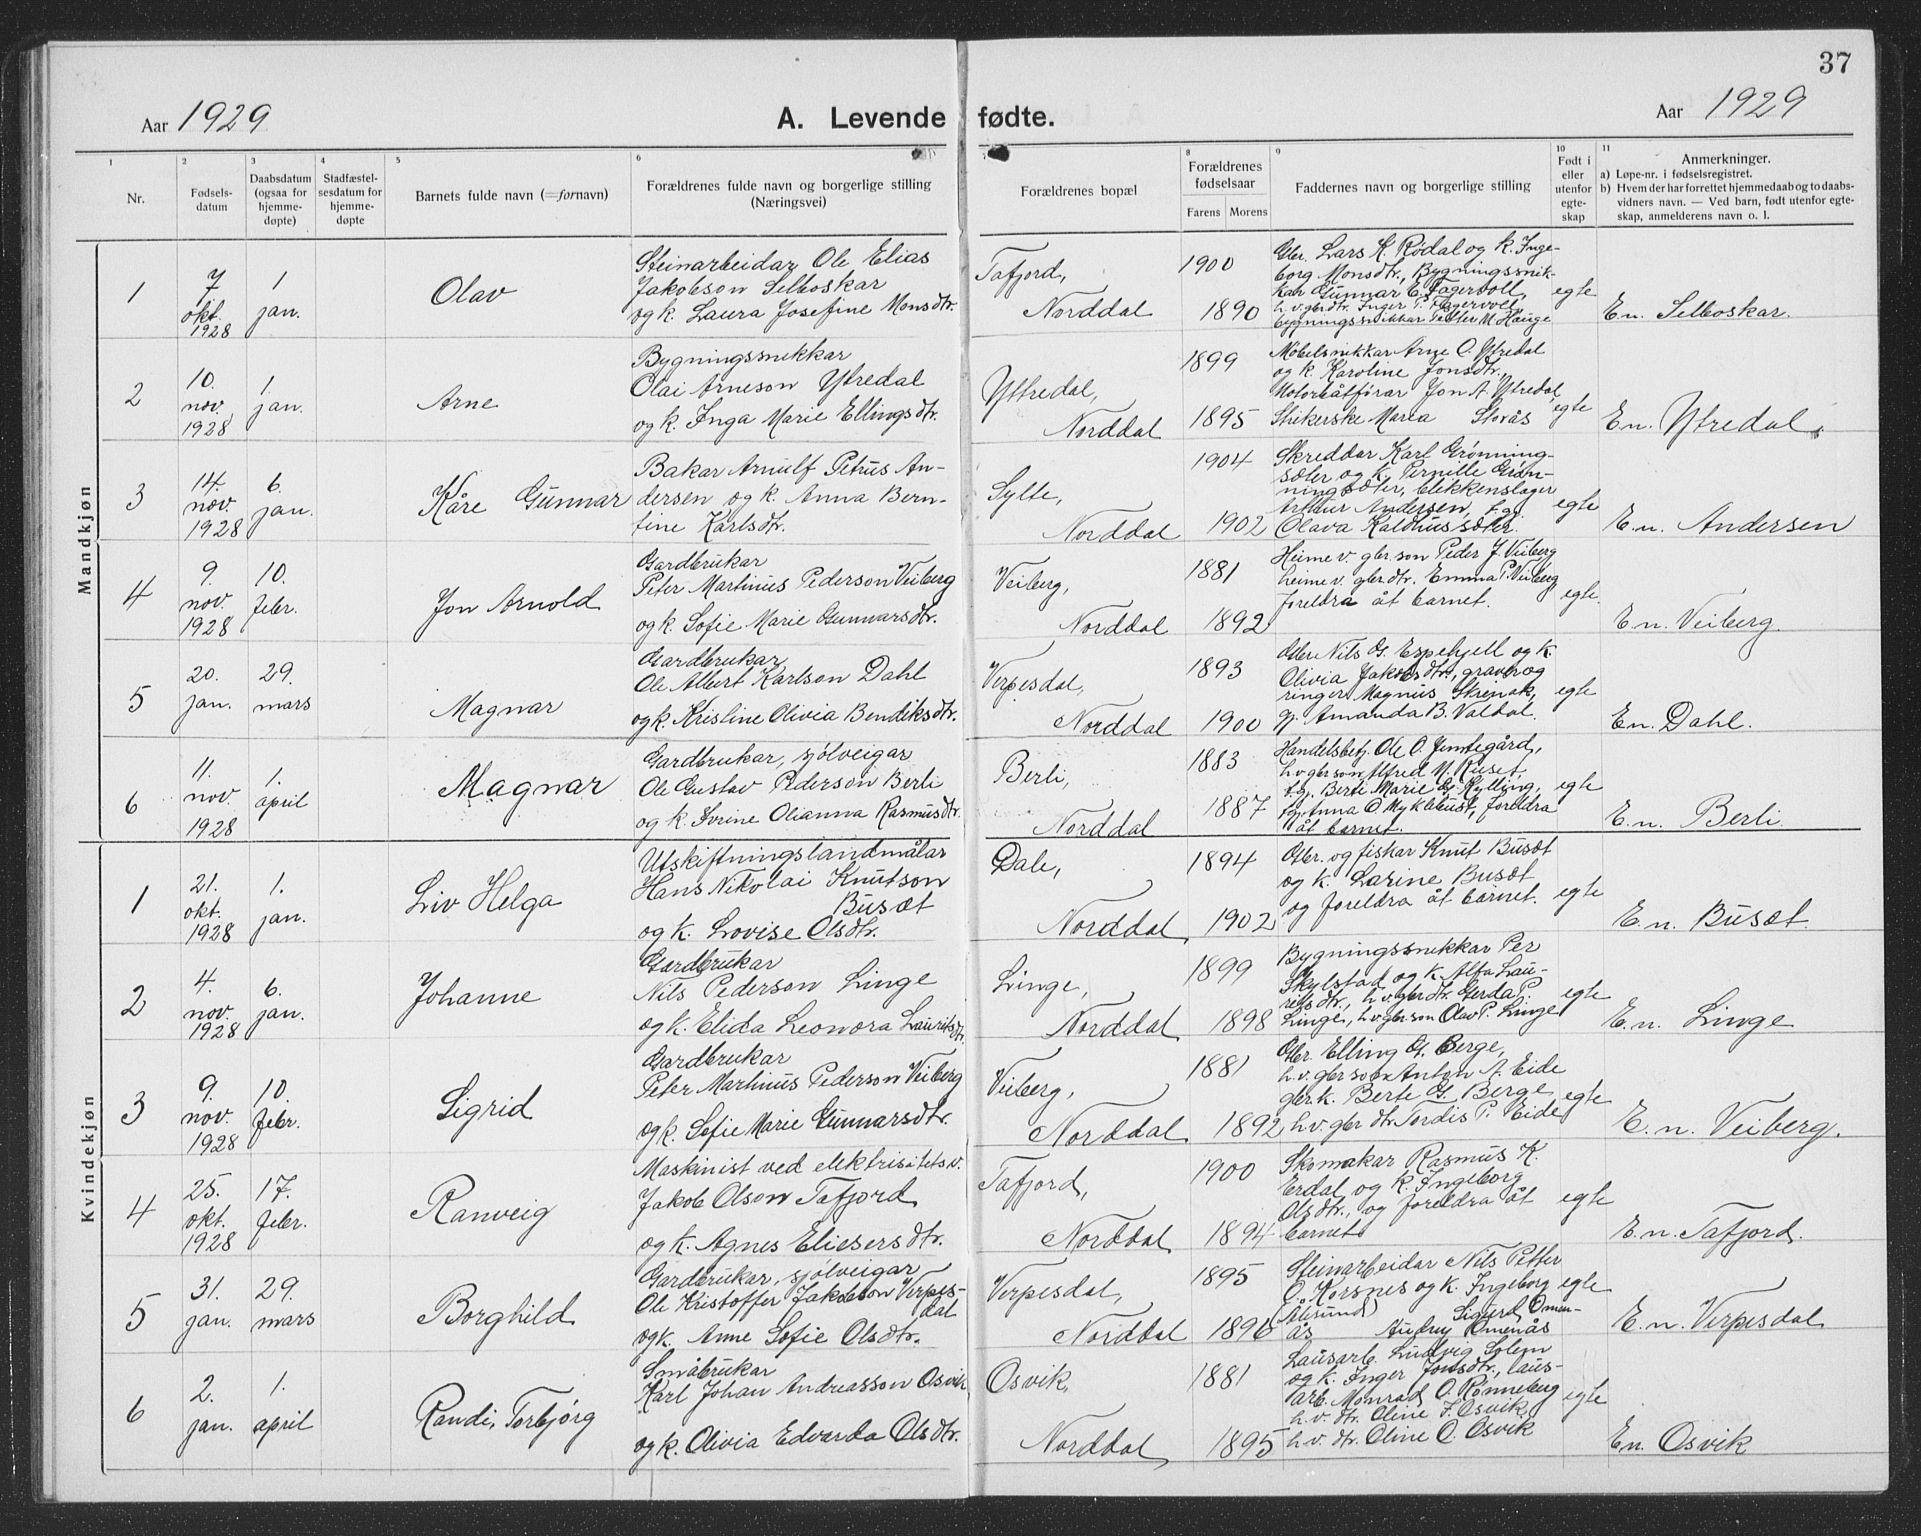 37
Aar 1929
A. Levende fødte.
Aar 1929
1 2 3 4 5 6 8 9 10 11
Nr.
Fødsels-
datum
Daabsdatum
(ogsaa for
hjemme-
døpte)
Stadfæstel-
sesdatum for
hjemme-
døpte
Barnets fulde navn (=fornavn)
Forældrenes fulde navn og borgerlige stilling
(Næringsvei)
Forældrenes bopæl
Forældrenes
fødselsaar
Farens Morens
Faddernes navn og borgerlige stilling
Født i
eller
utenfor
egte-
skap
Anmerkninger.
a) Løpe-nr. i fødselsregistret.
b) Hvem der har forrettet hjemmedaab og to daabs-
vidners navn. — Ved barn, født utenfor egte-
skap, anmelderens navn o. l.
Mandkjøn
1
7
okt.
1928
1
jan.
Olav
Steinarbeidar Ole Elias
Jakobson Selboskar
og k. Laura Josefine Monsdtr.
Tafjord,
Norddal
1900
1890
Gbr. Lars K. Rødal og k. Inge-
borg Monsdtr., Bygningssnik-
kar Gunnar E. Fagervoll,
h.v. gbr dtr. Inger P. Fagervoll
bygningssnikkar Petter M. Hauge
egte
E.n. Selboskar.
2
10.
nov.
1928
1.
jan.
Arne
Bygningssnikkar
Olai Arneson Ytredal
og k. Inga Marie Ellingsdtr.
Yttredal,
Norddal
1899
1895
Møbelsnikkar Arne O. Ytredal
og k. Karoline Jonsdtr.,
Motorbåtførar Jon A. Ytredal
Strikerske Maria Storås
egte
E.n. Ytredal.
3
14.
nov.
1928
6.
jan.
Kåre Gunnar
Bakar Arnulf Petrus An-
dersen og k. Anna Bern-
tine Karlsdtr.
Sylte,
Norddal
1904
1902
Skreddar Karl Grønning-
sæter og k. Pernille Grøn-
ningsæter, blikkenslager
Arthur Andersen, t.gj.
Olava Kaldhussæter.
egte
E.n. Andersen
4
9.
nov.
1928
10.
febr.
Jon Arnold
Gardbrukar
Peter Martinus Pederson Veiberg
og k. Sofie Marie Gunnarsdtr.
Veiberg,
Norddal
1881
1892
Heime v. gbr. son Peder J. Veiberg
heime v. gbr dtr. Emma P. Veiberg
foreldra åt barnet.
egte.
E.n. Veiberg.
5
20.
jan.
29.
mars
Magnar
Gardbrukar
Ole Albert Karlson Dahl
og k. Kristine Olivia Bendiksdtr.
Verpesdal,
Norddal
1893
1900
Gbr. Nils G. Espehjell og k.
Olivia Jakobsdtr., graver og
ringer Magnus Skrenak,
gj. Amanda B. Valdal.
egte
E.n. Dahl.
6
11.
nov.
1928
1.
april
Magnar
Gardbrukar, sjølveigar
Ole Gustav Pederson Berli
og k. Sverine Olianna Rasmusdtr.
Berli,
Norddal
1883
1887
Handelsbetj. Ole O. Jemtegård,
h.v gbr son Alfred M. Ruset,
t.gj. Berte Marie G. Kylling,
t.gj. Anna O. Myklebust, foreldra
åt barnet.
egte
E.n. Berli
Kvindekjøn
1
21.
okt.
1928
1.
jan.
Liv Helga
Utskiftningslandmålar
Hans Nikolai Knutson
Busæt
og k. Lovise Olsdtr.
Dale,
Norddal
1894
1902
Gbr. og fiskar Knut Busæt
og k. Larine Busæt
og foreldra åt barnet.
egte
E.n. Busæt.
2
4.
nov.
1928
6.
jan.
Johanne
Gardbrukar
Nils Pederson Linge
og k. Elida Leonora Lauritsdtr.
Linge,
Norddal
1899
1898
Bygningssnikkar Per
Skylstad og k. Alfa Lau-
ritsdtr., h.v. gbr dtr. Gerda P.
Linge, h.v. gbr son Olav P. Linge
egte
E.n. Linge
3
9.
nov.
1928
10.
febr.
Sigrid
Gardbrukar
Peter Martinus Pederson Veiberg
og k. Sofie Marie Gunnarsdtr.
Veiberg,
Norddal
1881
1892
Gbr. Elling G. Berge,
h.v. gbr son Anton A. Eide
gbr.k. Berte G. Berge
h.v. gbr dtr. Tordis P. Eide
egte
E.n. Veiberg.
4
25.
okt.
1928
17.
febr.
Ranveig
Maskinist ved elektrisitetsv.
Jakob Olson Tafjord
og k. Agnes Eliesersdtr.
Tafjord,
Norddal
1900
1894
Skomakar Rasmus K.
Erdal og k. Ingeborg
Olsdtr., og foreldra åt
barnet
egte
E.n. Tafjord.
5
31.
jan.
29.
mars
Borghild
Gardbrukar, sjølveigar
Ole Kristoffer Jakobson Verpes-
dal
og k. Anne Sofie Olsdtr.
Verpesdal,
Norddal
1895
1896
Steinarbeidar Nils Petter
O. Korsnes og k. Ingeborg
(Ålesund) Sigurd Omen-
ås Audny Omenås
egte
E.n. Verpesdal
6
2.
jan.
1.
april
Randi Torbjørg
Småbrukar
Karl Johan Andreasson Osvik
og k. Olivia Edvarda Olsdtr.
Osvik,
Norddal
1881
1895
Lausarb. Ludvig Solem
og k. Inger Jonsdtr., laus-
arb. Monrad O. Rønneberg
h.v. dtr. Oline J. Osvik
h.v. dtr. Oline O. Osvik
egte
E.n. Osvik